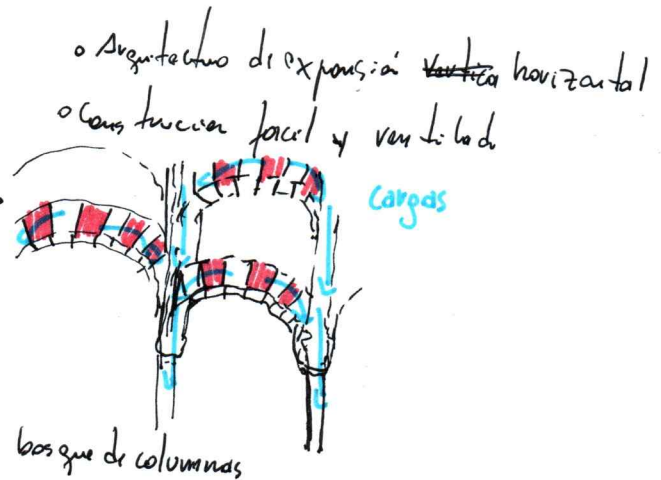 o Arquitectura de expansión vertica horizontal
o Construccion facil y ventilada
cargas
bosque de columnas